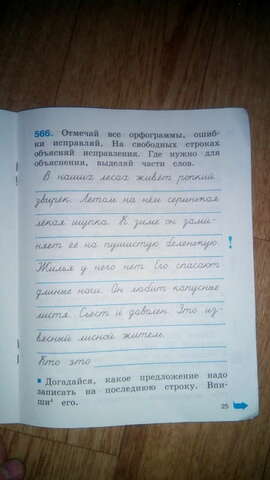 566. Отмечай все орфограммы, ошиб-
ки исправляй. На свободных строках
объясняй исправления. Где нужно для
объяснения, выделяй части слов.
В наших лесах живёт ропкий
звирёк. Летом на нём серинькая
лёхкая шупка. К зиме он заме-
няет её на пушистую беленькую.
Жилья у него нет. Его спасают
длиные ноги. Он любит капусные
листя. Съест и даволен. Это из-
весный лисной житель.
Кто это
Догадайся, какое предложение надо
записать на последнюю строку. Впи-
ши¹ его.
25
!